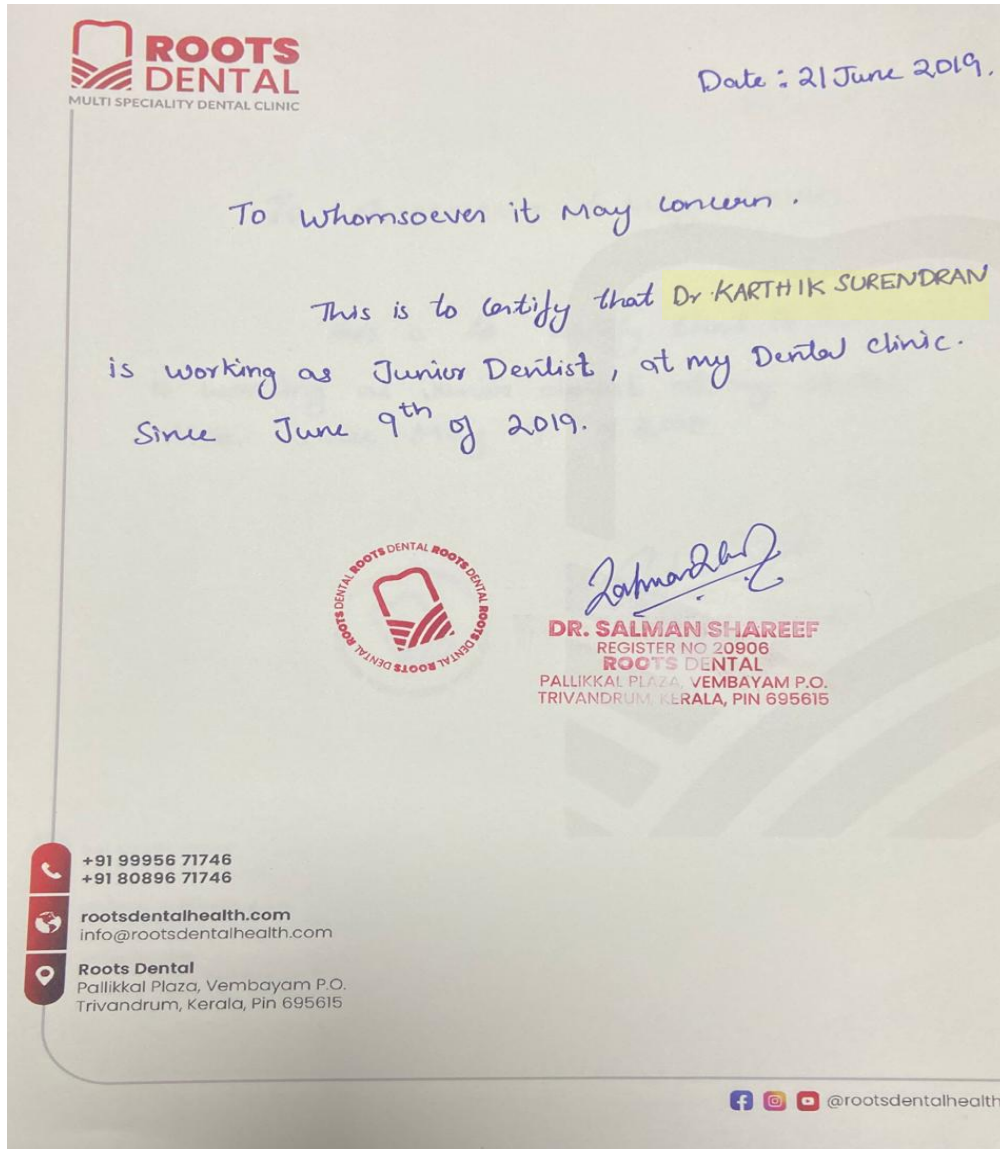 ROOTS
DENTAL
MULTI SPECIALITY DENTAL CLINIC
Date : 21 June 2019.
To whomsoever it May concern .
This is to certify that Dr. KARTHIK SURENDRAN
is working as Junior Dentist, at my Dental clinic.
Since June 9th of 2019.
ROOTS DENTAL ROOTS DENTAL ROOTS DENTAL ROOTS DENTAL ROOTS DENTAL
DR. SALMAN SHAREEF
REGISTER NO 20906
ROOTS DENTAL
PALLIKKAL PLAZA, VEMBAYAM P.O.
TRIVANDRUM, KERALA, PIN 695615
+91 99956 71746
+91 80896 71746
rootsdentalhealth.com
info@rootsdentalhealth.com
Roots Dental
Pallikkal Plaza, Vembayam P.O.
Trivandrum, Kerala, Pin 695615
@rootsdentalhealth